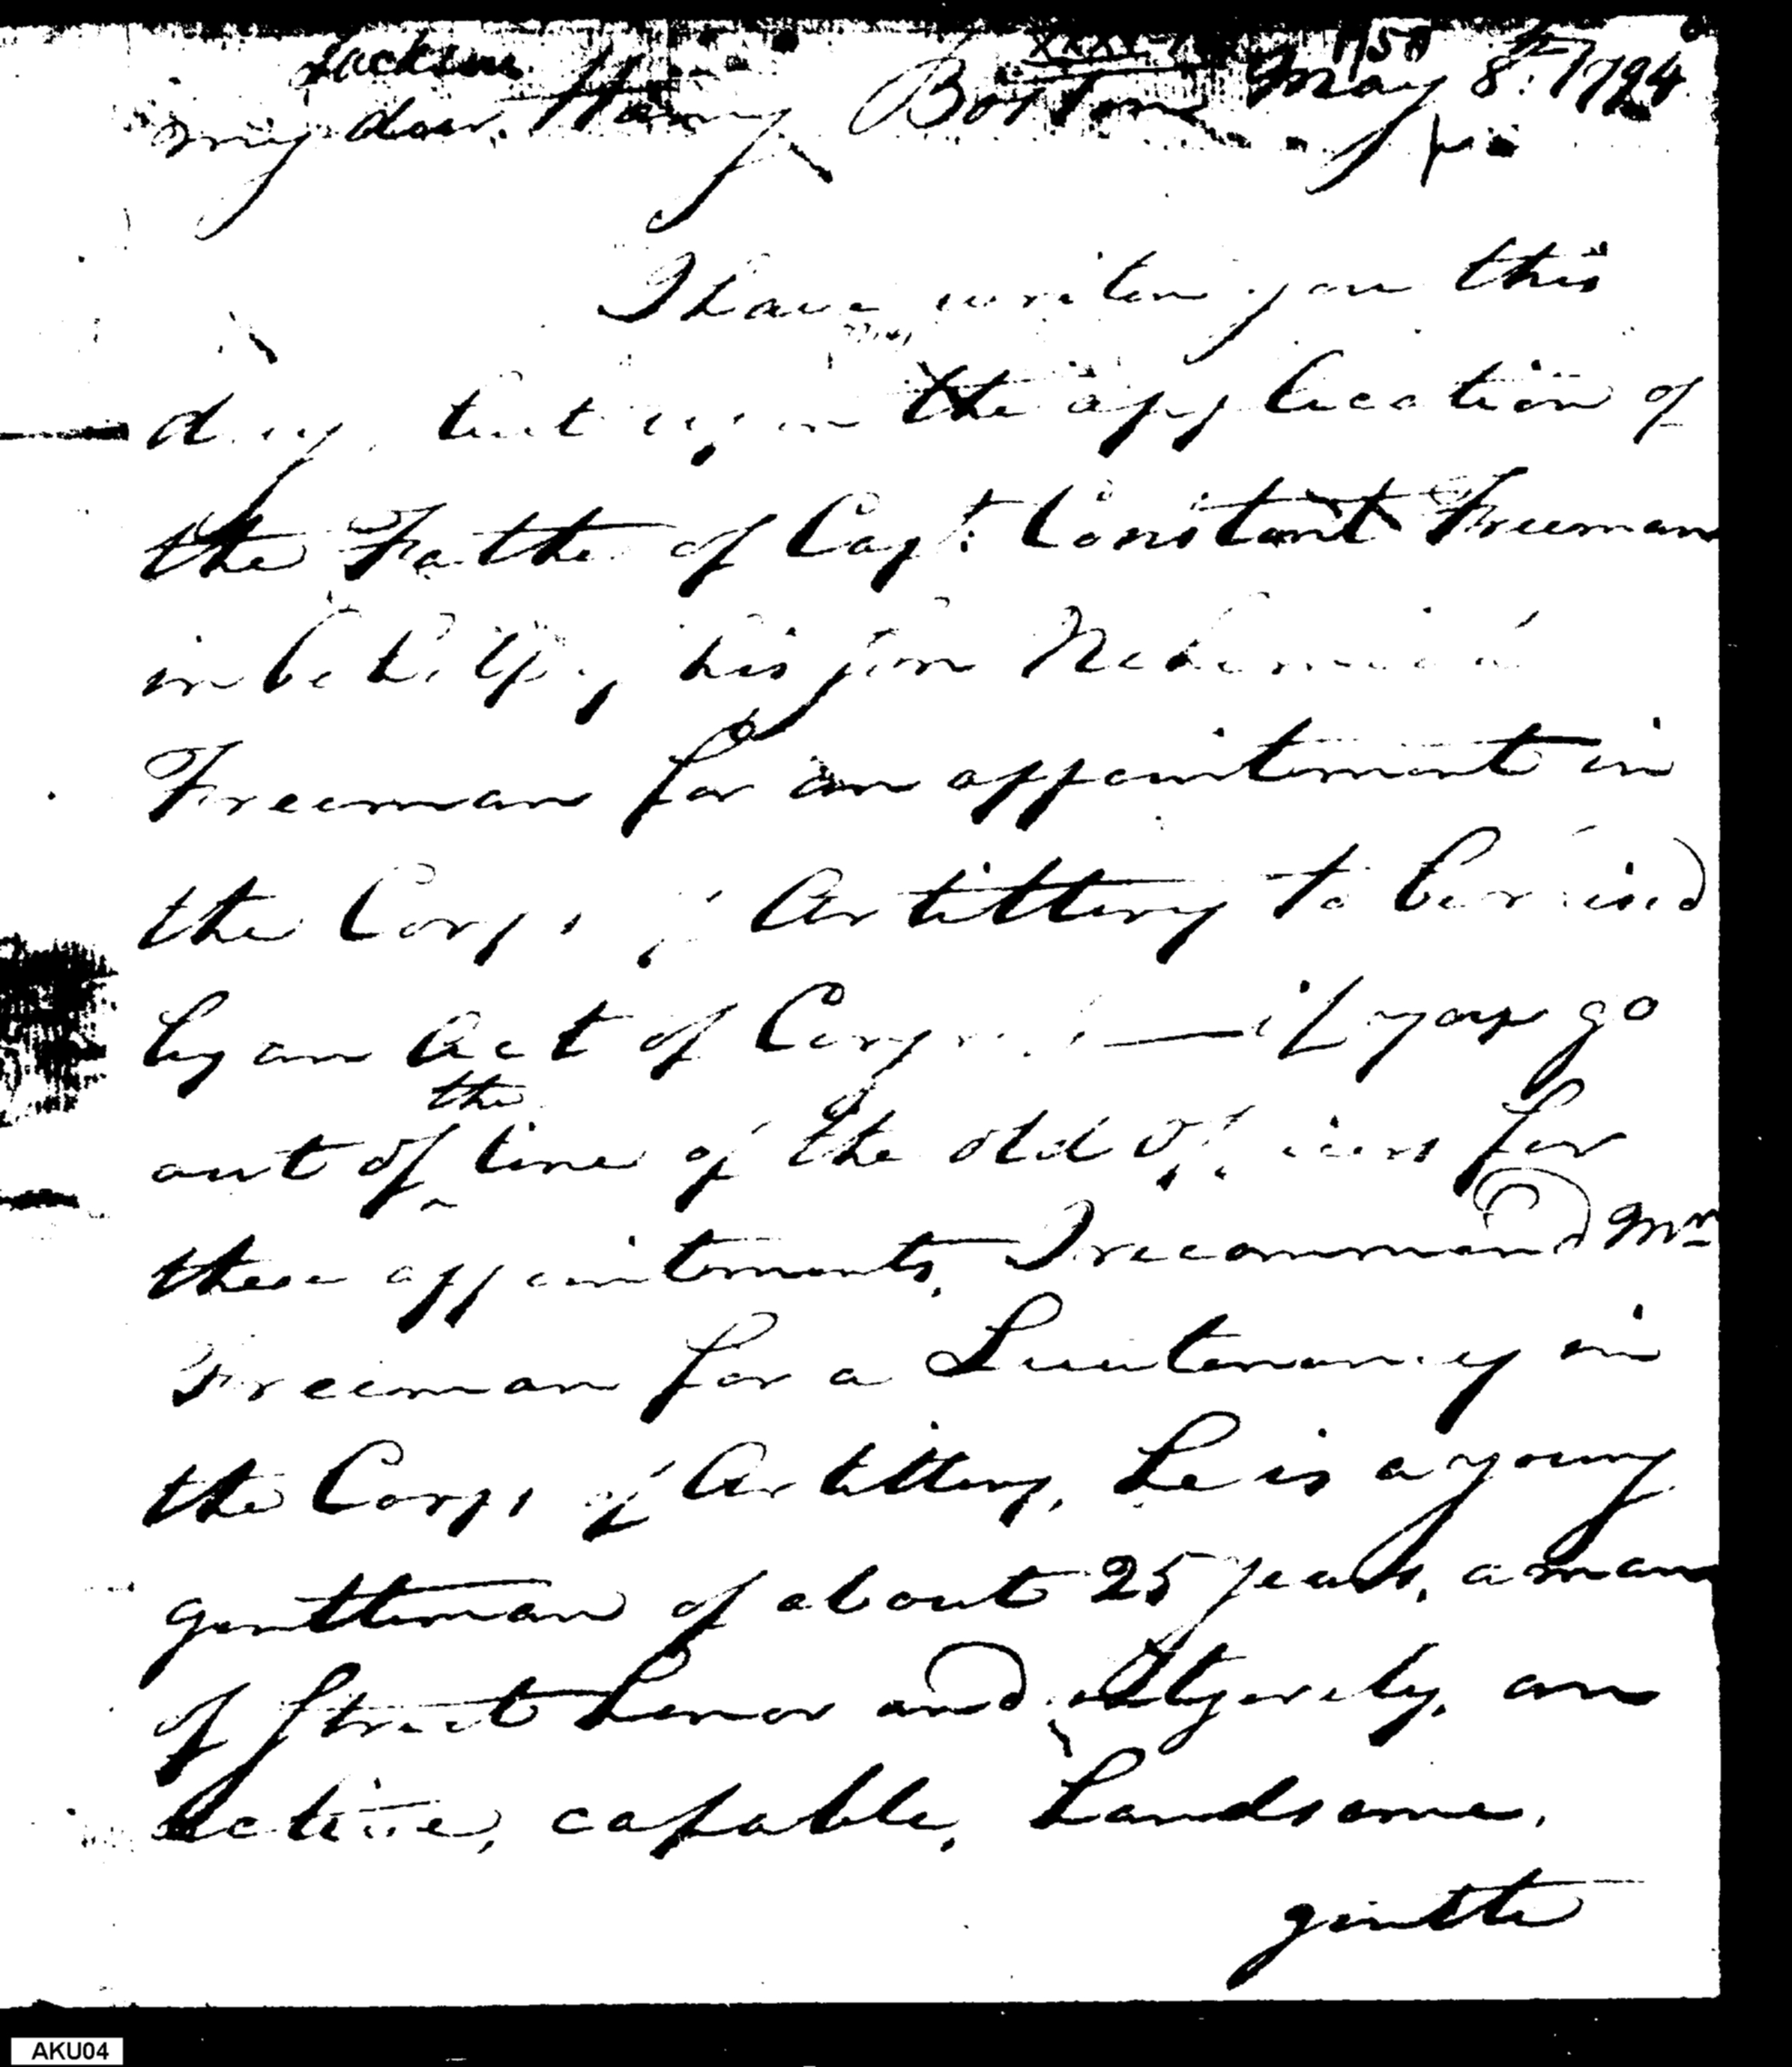 Jackson
Boston May 8th. 1794
my dear Harry
I have writen you this
day, but upon the application of
the Father of Capt. Constant Freeman
in behalf of his son Nehemiah
Freeman for an appointment in
the Corps of Artillery to be raised
by an Act of Congress — if you go
out of the line of the old Officers for
these appointments, I recommend Mr
Freeman for a Lieutenancy in
the Corps of Artillery, he is a young
gentleman of about 25 years, a man
of strict honor and integerity, an
active, capable, handsome,
gentle
AKU04